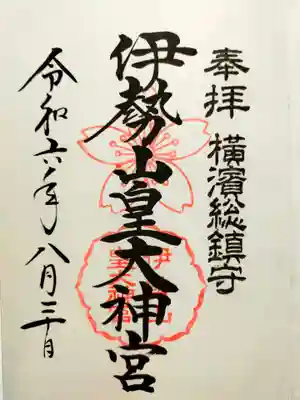 奉拝 横濱総鎮守
伊勢山皇大神宮
令和六年八月三日